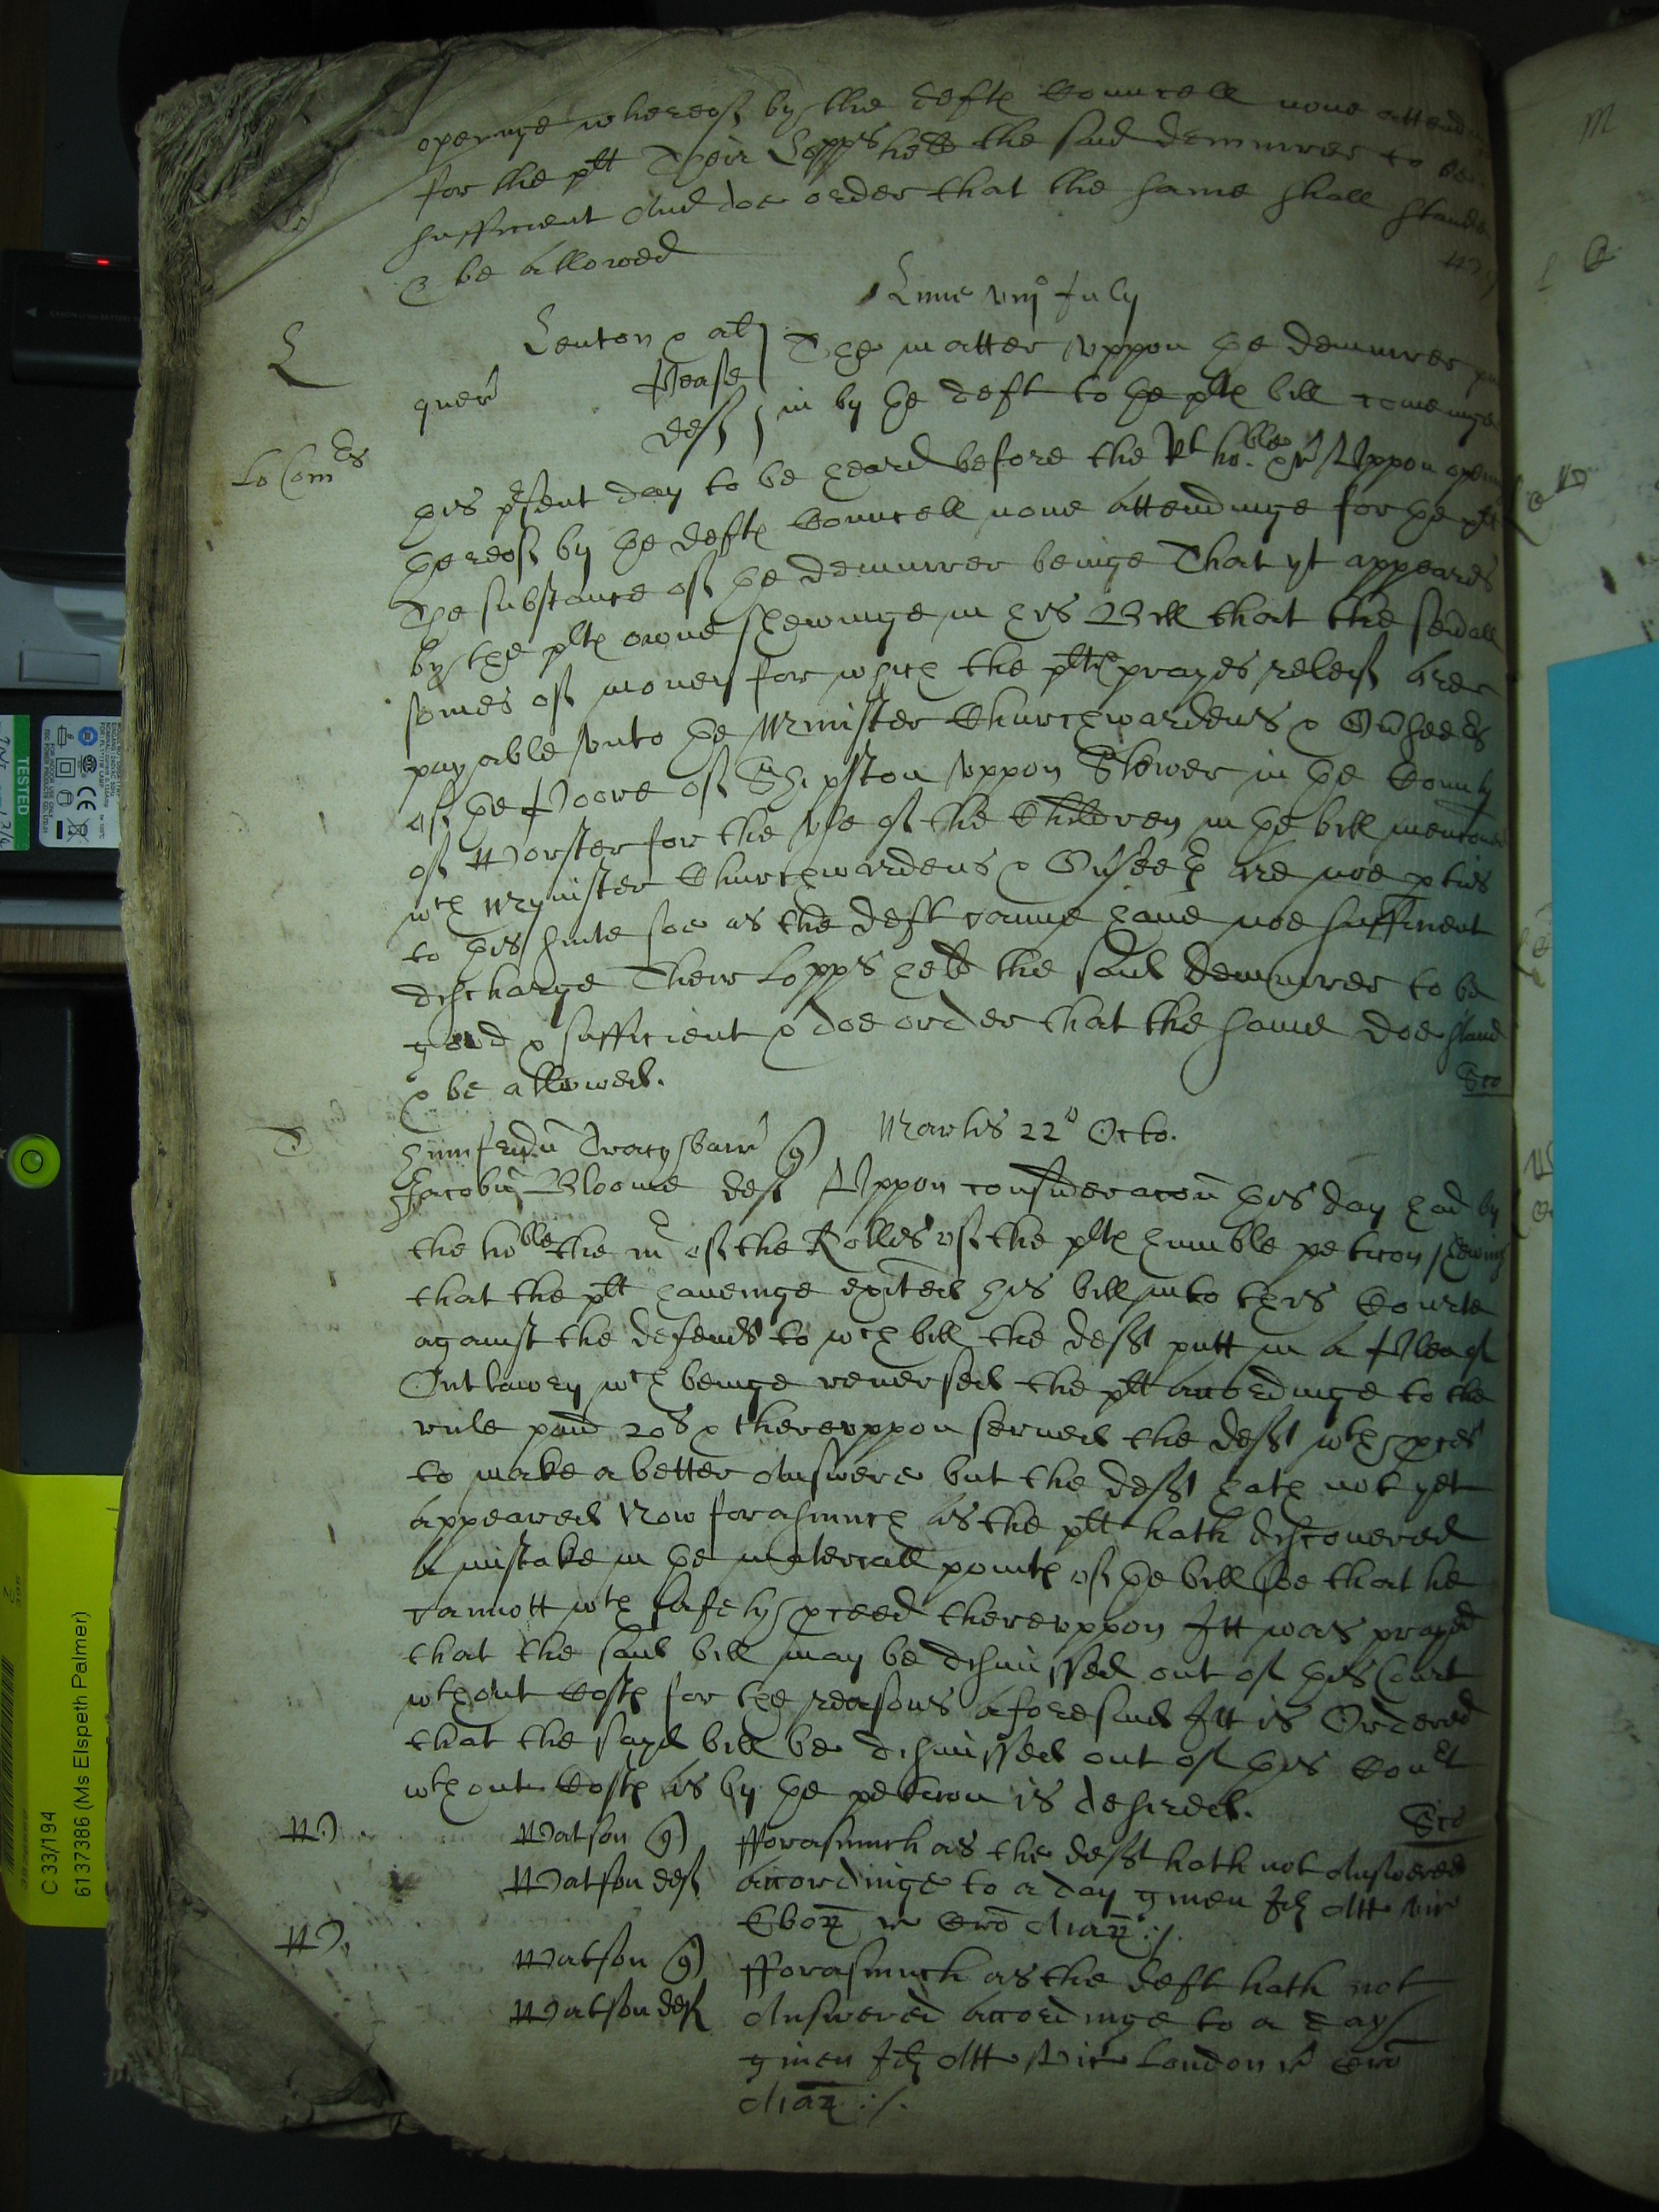 openinge whereof by the deftℯ Councell none attend
for the plt Their Lopps held the said demurrer to be
sufficient And doe order that the same shall stande
& be allowed
Lune viijo July
L
Lenton & al
quer
Pease
deft
The matter uppon the demurrer
in by the deft to the pltℯ bill cominge
Lo Comrs
this pñt day to be heard before the Rt ho:ble &c Uppon openinge
thereof by the deftℯ Councell none attendinge for the plt
The substance of the demurrer beinge That yt appeares
by the pltℯ owne shewinge in his Bill that the seuall
somes of money for which the pltℯ prayes releif are
payable unto the Minister Churchwardens & Ouseers
of the Poore of Shipston uppon Stower in the County
of Worster for the use of the Children in the bill mencõned
wch Mynister Churchwardens & Ouseers are noe pties
to this suite soe as the deft canne haue noe sufficient
discharge Their Lopps held the said demurrer to be
good & sufficient & doe order that the same doe stand
& be allowed.
T
Martis 22o Octo.
Humfridũ Tracy barr q)
Jacobũ Bloome deft Uppon consideracoñ this day had by
the hoble the mr of the Rolles of the pltℯ humble peticon shewing
that the plt haueinge exited his bill into this Courte
against the defendt to wch bill the deft putt in a Plea of
Outlawry wch beinge reuersed the plt accordinge to the
rule paid 20s & thereuppon serued the deft wth pces
to make a better Answere but the deft hath not yet
appeared Now forasmuch as the plt hath discouered
a mistake in the materiall pointℯ of the bill soe that he
cannott wth safety pceed thereuppon Itt was prayed
that the said bill may be dismissed out of this Court
wthout Costℯ for the reasons aforesaid Itt is Ordered
that the sayd bill be dismissed out of this Court
wthout Costℯ as by the peticon is desired.
W
Watson q)
Watson deft
fforasmuch as the deft hath not Answered
accordinge to a day giuen Id Att vic
Ebor r Cro Mar :/.
W
Watson q)
Watson deft
fforasmuch as the deft hath not
Answered accordinge to a day
giuen Id Att Vic London r Cro
Mar :/.
TESTED
C 33/194
6137386 (Ms Elspeth Palmer)